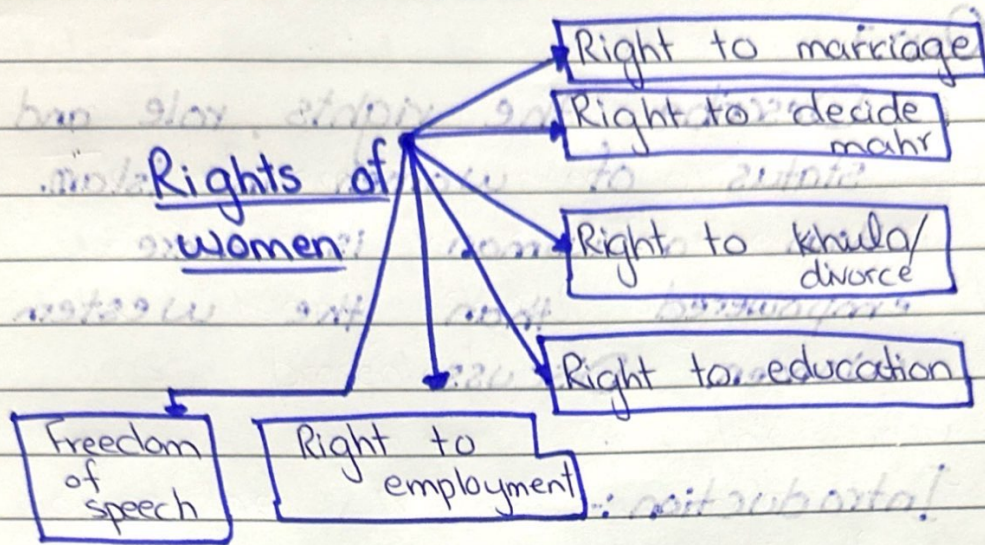 Rights of
women
Right to marriage
Right to decide
mahr
Right to khula/
divorce
Right to education
Right to
employment
Freedom
of
speech
Introduction :-